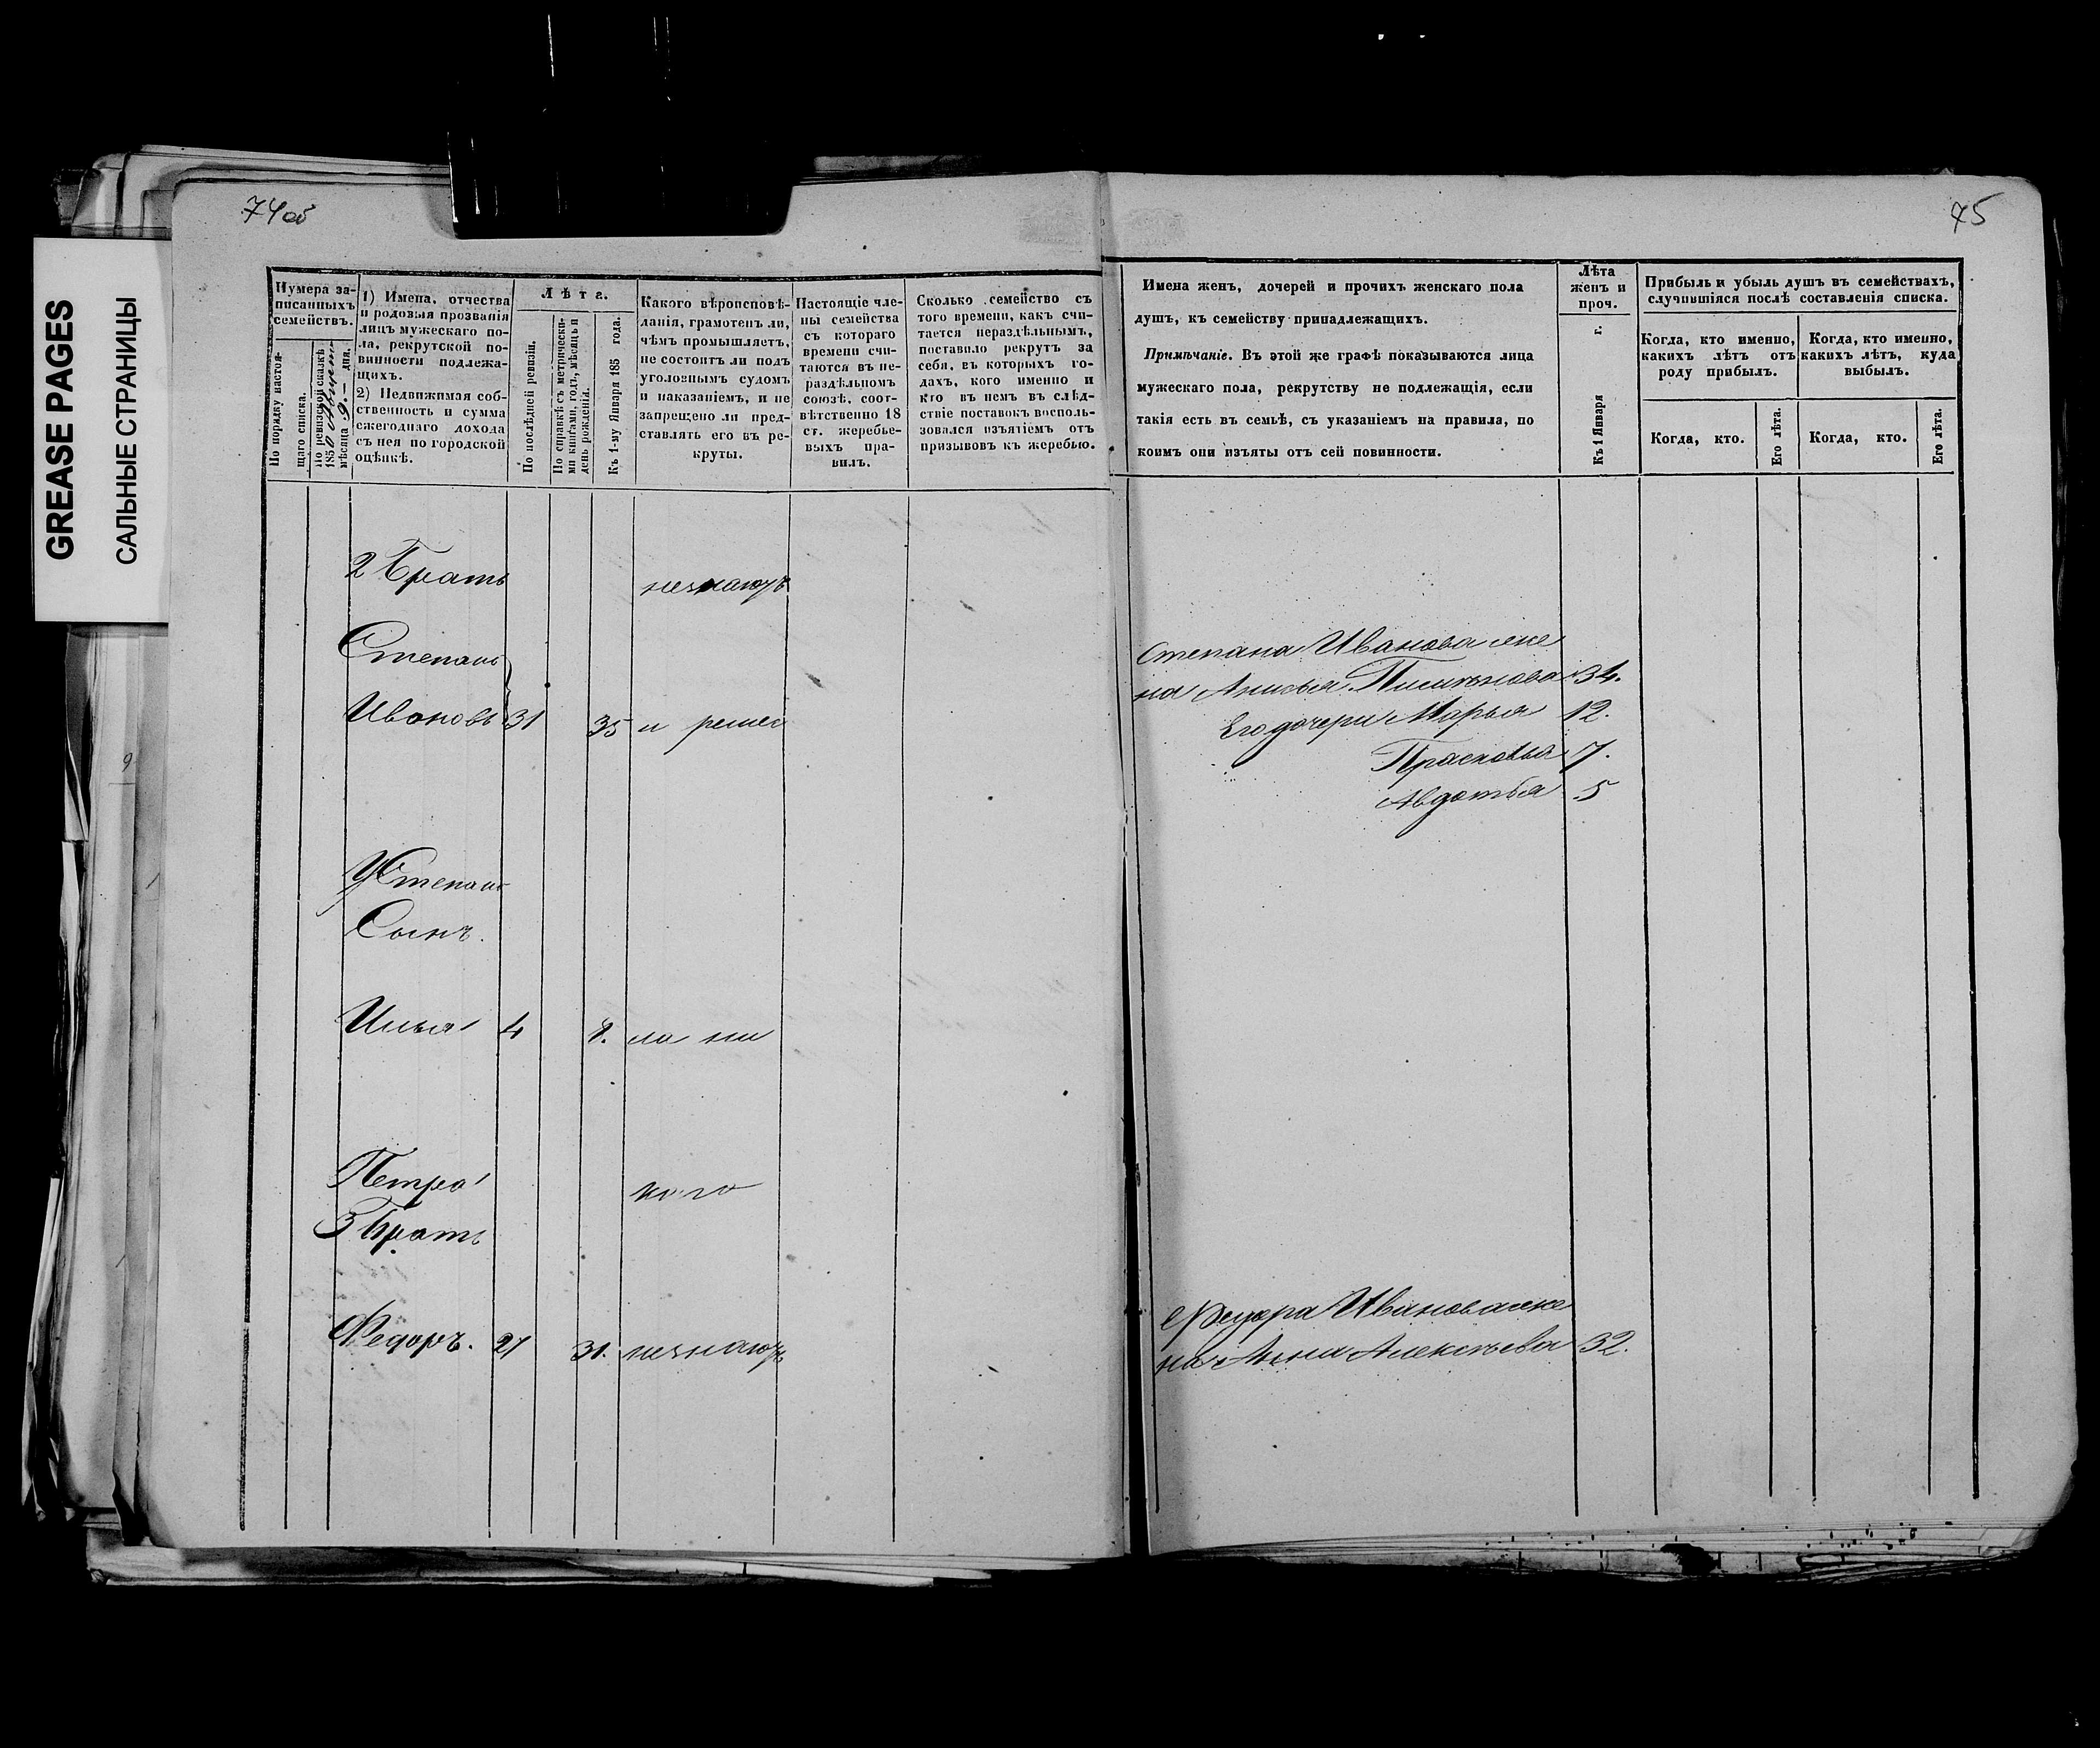 GREASE PAGES
САЛЬНЫЕ СТРАНИЦЫ
74об
75
Нумера за-
писанныхъ
семействъ.
По порядку настоя-
щаго списка.
По ревизской сказкѣ
1850
мѣсяца 9. — дня.
1) Имена, отчества
и родовыя прозванія
лицъ мужескаго по-
ла, рекрутской по-
винности подлежа-
щихъ.
2) Недвижимая соб-
ственность и сумма
ежегоднаго дохода
съ нея по городской
оцѣнкѣ.
Лѣта.
По послѣдней ревизіи.
По справкѣ съ метрически-
ми книгами, годъ, мѣсяцъ и
день рожденія.
Къ 1-му Января 185 года.
Какого вѣроисповѣ-
данія, грамотенъ ли,
чѣмъ промышляетъ,
не состоитъ ли подъ
уголовнымъ судомъ
и наказаніемъ, и не
запрещено ли пред-
ставлять его въ ре-
круты.
Настоящіе чле-
ны семейства
съ котораго
времени счи-
таются въ не-
раздѣльномъ
союзѣ, соот-
вѣтственно 18
ст. жеребье-
выхъ пра-
вилъ.
Сколько семейство съ
того времени, какъ счи-
тается нераздѣльнымъ,
поставило рекрутъ за
себя, въ которыхъ го-
дахъ, кого именно и
кто въ немъ въ слѣд-
ствіе поставокъ восполь-
зовался изъятіемъ отъ
призывовъ къ жеребью.
Имена женъ, дочерей и прочихъ женскаго пола
душъ, къ семейству принадлежащихъ.
Примѣчаніе. Въ этой же графѣ показываются лица
мужескаго пола, рекрутству не подлежащія, если
такія есть въ семьѣ, съ указаніемъ на правила, по
коимъ они изъяты отъ сей повинности.
Лѣта
женъ и
проч.
Къ 1 Января г.
Прибыль и убыль душъ въ семействахъ,
случившіяся послѣ составленія списка.
Когда, кто именно,
какихъ лѣтъ отъ
роду прибылъ.
Когда, кто именно,
какихъ лѣтъ, куда
выбылъ.
Когда, кто.
Его лѣта.
Когда, кто.
Его лѣта.
2 Братъ
незнаютъ
Степанъ
Ивановъ 31 35 и ремес
Степана Иванова же
на Анисья 34.
Его дочери Марья 12.
Прасковья 7.
Авдотья 5
У Степана
Сынъ.
Илья 4 8. ла ни
Петра
3 Братъ
кого
Федоръ. 27 31. незнаютъ
Федора Иванова же
на Анна Алексѣева 32.
9